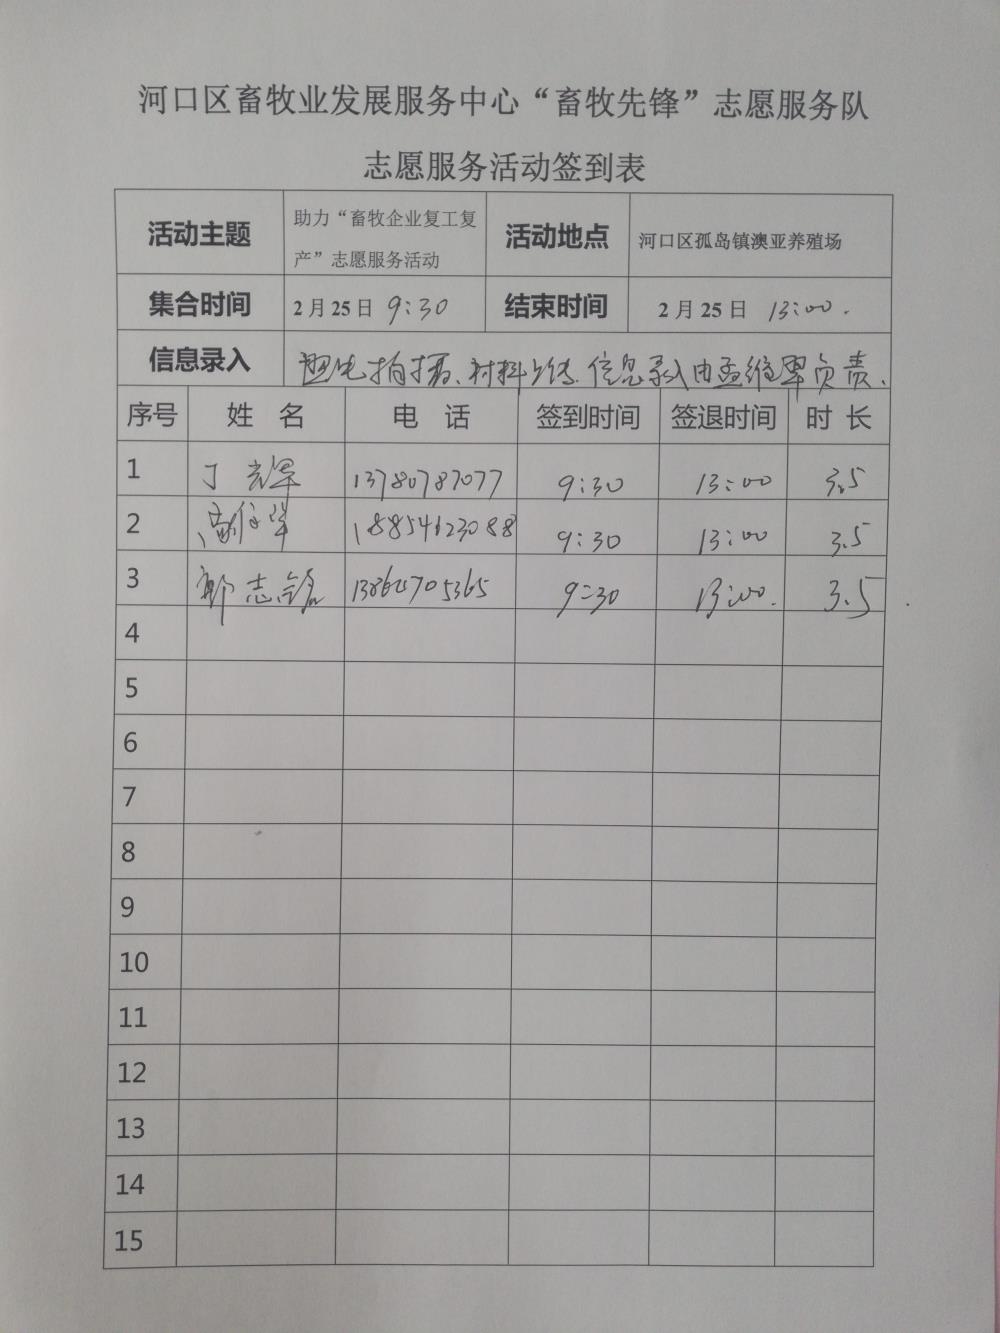 河口区畜牧业发展服务中心“畜牧先锋”志愿服务队
志愿服务活动签到表
活动主题 助力“畜牧企业复工复产”志愿服务活动 活动地点 河口区孤岛镇澳亚养殖场
集合时间 2月25日 9:30 结束时间 2月25日 13:00.
信息录入 照片拍摄、材料上传、信息录入由孟维翠负责.
序号 姓 名 电 话 签到时间 签退时间 时 长
1 丁光辉 13780787077 9:30 13:00 3.5
2 18854623088 9:30 13:00 3.5
3 郭志磊 9:30 13:00. 3.5
4
5
6
7
8
9
10
11
12
13
14
15